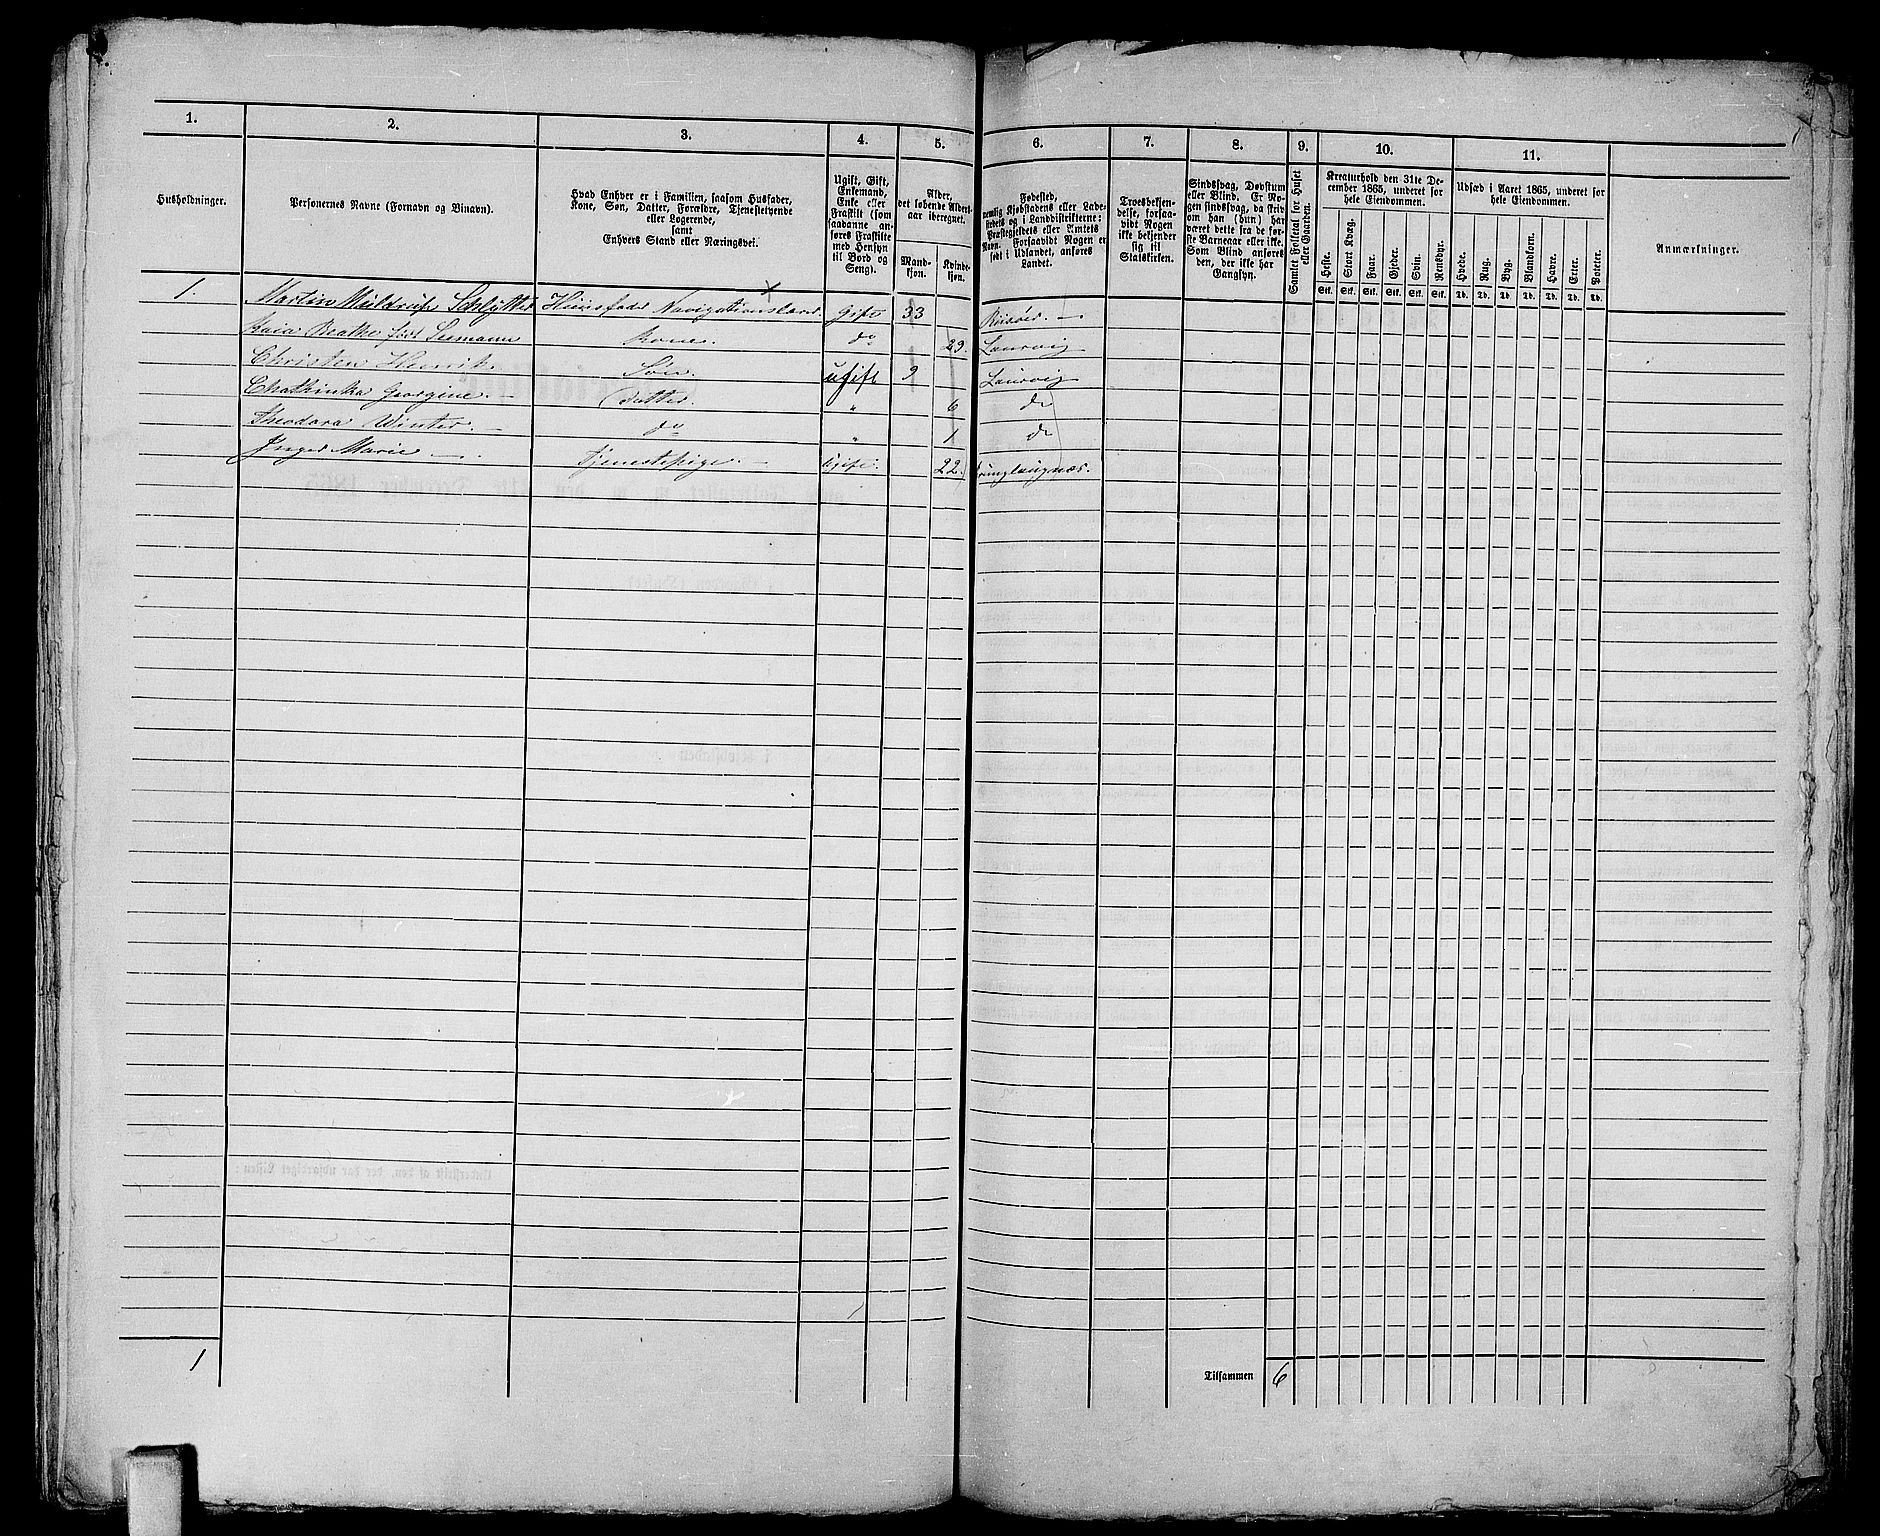 1. 2. 3. 4. 5. 6. 7. 8. 9. 10. 11.
Husholdninger.
Personernes Navne (Fornavn og Binavn).
Hvad Enhver er i Familien, saasom Husfader,
Kone, Søn, Datter, Forældre, Tjenestetyende
eller Logerende,
samt
Enhvers Stand eller Næringsvei.
Ugift, Gift,
Enkemand,
Enke eller
Fraskilt (som
saadanne an-
føres Fraskilte
med Hensyn
til Bord og
Seng).
Alder,
det løbende Alders-
aar iberegnet.
Mand-
kjøn.
Kvinde-
kjøn.
Fødested,
nemlig Kjøbstadens eller Lade-
stedets og i Landdistrikterne:
Præstegjeldets eller Amtets
Navn. Forsaavidt Nogen er
født i Udlandet, anføres
Landet.
Troesbekjen-
delse, forsaa-
vidt Nogen
ikke bekjender
sig til
Statskirken.
Sindssvag, Døvstum
eller Blind. Er No-
gen sindssvag, da skriv
om han (hun) har
været dette fra de før-
ste Barneaar eller ikke.
Som Blind anføres
den, der ikke har
Gangsyn.
Samlet Folketal for Huset
eller Gaarden.
Kreaturhold den 31te De-
cember 1865, underet for
hele Eiendommen.
Heste. Stort Kvæg. Faar. Gjeder. Svin. Rensdyr.
Stk. Stk. Stk. Stk. Stk. Stk.
Udsæd i Aaret 1865, underet for
hele Eiendommen.
Hvede. Rug. Byg. Blandkorn. Havre. Erter. Poteter.
Td. Td. Td. Td. Td. Td. Td.
Anmærkninger.
1. Martin Schlytter Huusfader Navigationslærer Gift 33 Risøer
Kaia født Seemann Kone. do 29. Laurvig
Christen Henrik Søn ugift 9 Laurvig
Chathinka Georgine. Datter " 6 do
Theodora Winter. do " 1 do
Inger Marie Tjenestepige. Ugift. 22.
1
Tilsammen 6